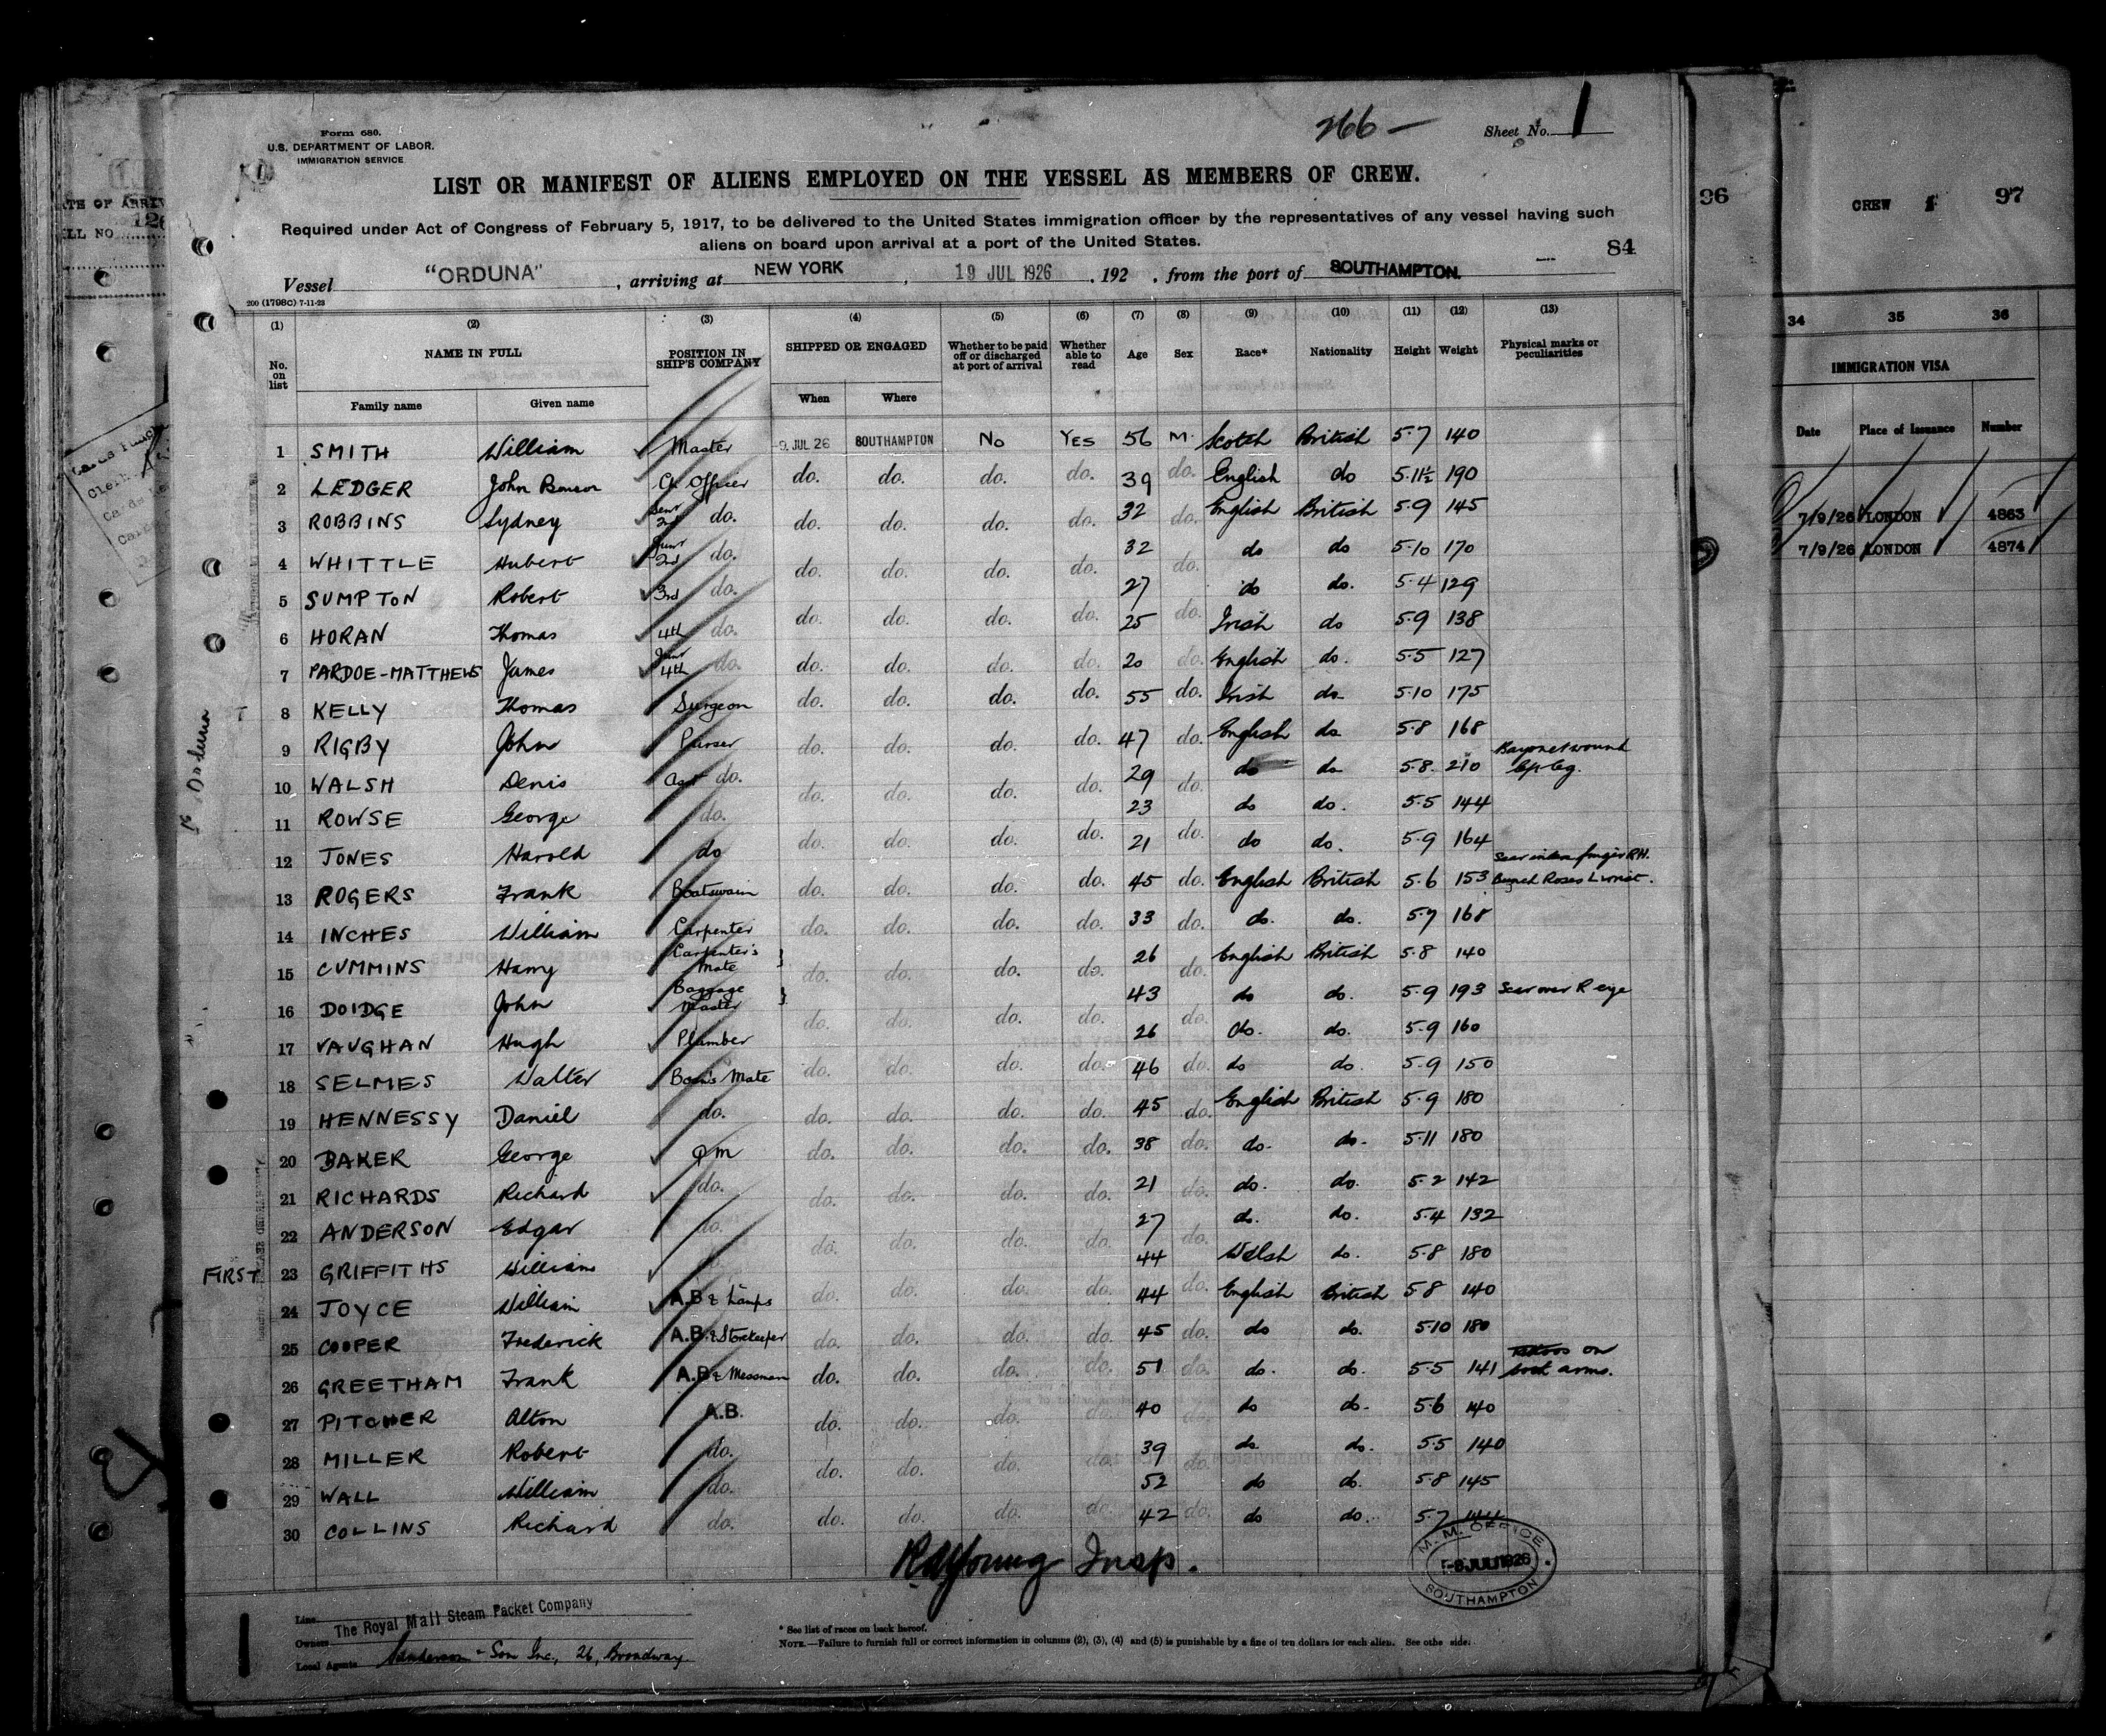 Form 680.
U.S. DEPARTMENT OF LABOR.
IMMIGRATION SERVICE
266 —
Sheet No. 1
LIST OR MANIFEST OF ALIENS EMPLOYED ON THE VESSEL AS MEMBERS OF CREW.
Required under Act of Congress of February 5, 1917, to be delivered to the United States immigration officer by the representatives of any vessel having such
aliens on board upon arrival at a port of the United States.
84
Vessel "ORDUNA", arriving at NEW YORK, 19 JUL 1926, 192 , from the port of SOUTHAMPTON.
200 (1798C) 7-11-23
(1) (2) (3) (4) (5) (6) (7) (8) (9) (10) (11) (12) (13)
No. on list NAME IN FULL POSITION IN SHIP'S COMPANY SHIPPED OR ENGAGED Whether to be paid off or discharged at port of arrival Whether able to read Age Sex Race* Nationality Height Weight Physical marks or peculiarities
Family name Given name When Where
1 SMITH William Master 9 JUL 26 SOUTHAMPTON No YES 56 M. Scotch British 5·7 140
2 LEDGER John Benson Ch. Officer do. do. do. do. 39 do. English do 5·11½ 190
3 ROBBINS Sydney Senr 2nd do. do. do. do. do. 32 do. English British 5·9 145
4 WHITTLE Hubert Junr 2nd do. do. do. do. do. 32 do. do do 5·10 170
5 SUMPTON Robert 3rd do. 27 do do. 5·4 129
6 HORAN Thomas 4th do. do. do. do. do. 25 do. Irish do 5·9 138
7 PARDOE-MATTHEWS James Junr 4th do. do. do. do. do. 20 do. English do. 5·5 127
8 KELLY Thomas Surgeon do. do. do. do. 55 do. Irish do 5·10 175
9 RIGBY John Purser do. do. do. do. 47 do. English do 5·8 168
10 WALSH Denis Asst do. do. do. do. do. 29 do. do do 5·8 210 Bayonet wound leg.
11 ROWSE George do. 23 do do. 5·5 144
12 JONES Harold do do. do. do. do. 21 do. do do. 5·9 164
13 ROGERS Frank Boatswain do. do. do. do. 45 do. English British 5·6 153 Scar index finger RH. Bunch Roses L wrist.
14 INCHES William Carpenter do. do. do. do. 33 do. do. do. 5·7 168
15 CUMMINS Harry Carpenter's Mate do. do. do. do. 26 do. English British 5·8 140
16 DOIDGE John Baggage Master do. do. do. do. 43 do. do do. 5·9 193 Scar over R eye
17 VAUGHAN Hugh Plumber 26 do. do. 5·9 160
18 SELMES Walter Bosn's Mate do. do. do. do. 46 do. do do. 5·9 150
19 HENNESSY Daniel do. do. do. do. do. 45 do. English British 5·9 180
20 BAKER George QM do. do. do. do. 38 do. do. do. 5·11 180
21 RICHARDS Richard do. do. do. do. do. 21 do. do. do. 5·2 142
22 ANDERSON Edgar do. do. do. do. do. 27 do. do. do. 5·4 132
FIRST 23 GRIFFITHS William 44 Welsh do. 5·8 180
24 JOYCE William A.B & Lamps do. do. do. do. 44 do. English British 5·8 140
25 COOPER Frederick A.B. & Storekeeper do. do. do. do. 45 do. do do. 5·10 180
26 GREETHAM Frank A.B & Messman do. do. do. do. 51 do. do. do. 5·5 141 Tattoos on both arms.
27 PITCHER Alton A.B. do. do. do. do. 40 do do. 5·6 140
28 MILLER Robert do. do. do. do. do. 39 do. do. do. 5·5 140
29 WALL William do. 52 do do. 5·8 145
30 COLLINS Richard do. do. do. do. do. 42 do. do do. 5·7
Insp.
M.M. OFFICE
8 JUL 1926
SOUTHAMPTON
Line The Royal Mail Steam Packet Company
Owners
Local Agents Sanderson & Son Inc., 26, Broadway
* See list of races on back hereof.
NOTE.—Failure to furnish full or correct information in columns (2), (3), (4) and (5) is punishable by a fine of ten dollars for each alien. See othe side.
96
CREW 1 97
34 35 36
IMMIGRATION VISA
Date Place of Issuance Number
7/9/26 LONDON 4863
7/9/26 LONDON 4874